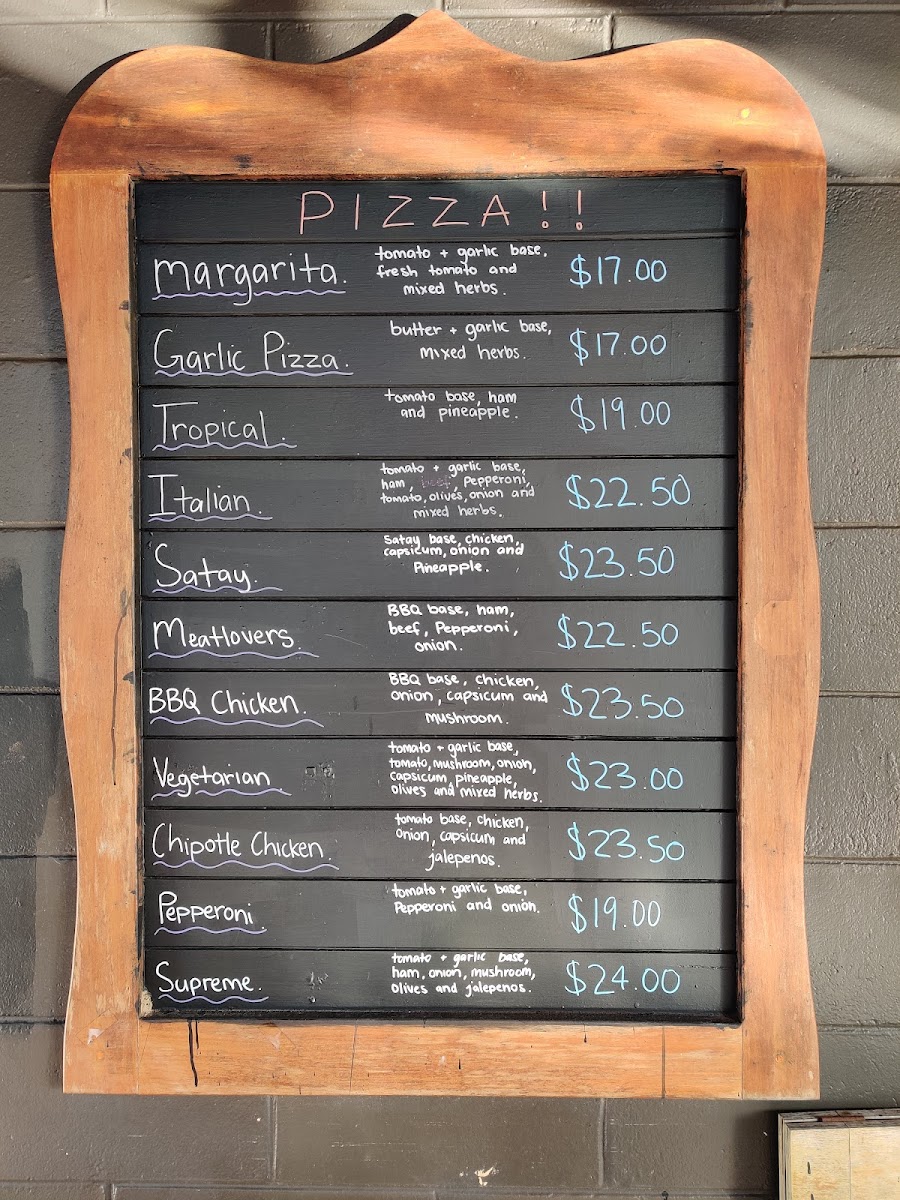 PIZZA!!
Margarita.
tomato + garlic base,
fresh tomato and
mixed herbs.
$17.00
Garlic Pizza.
butter + garlic base,
mixed herbs.
$17.00
Tropical.
tomato base, ham
and pineapple.
$19.00
Italian
tomato + garlic base,
ham, beef, Pepperoni,
tomato, olives, onion and
mixed herbs.
$22.50
Satay.
Satay base, chicken,
capsicum, onion and
Pineapple.
$23.50
Meatlovers.
BBQ base, ham,
beef, Pepperoni,
onion.
$22.50
BBQ Chicken.
BBQ base, chicken,
onion, capsicum and
mushroom.
$23.50
Vegetarian
tomato + garlic base,
tomato, mushroom, onion,
capsicum, pineapple,
olives and mixed herbs.
$23.00
Chipotle Chicken.
tomato base, chicken,
onion, capsicum and
jalepenos.
$23.50
Pepperoni
tomato + garlic base,
Pepperoni and onion.
$19.00
Supreme.
tomato + garlic base,
ham, onion, mushroom,
olives and jalepenos.
$24.00